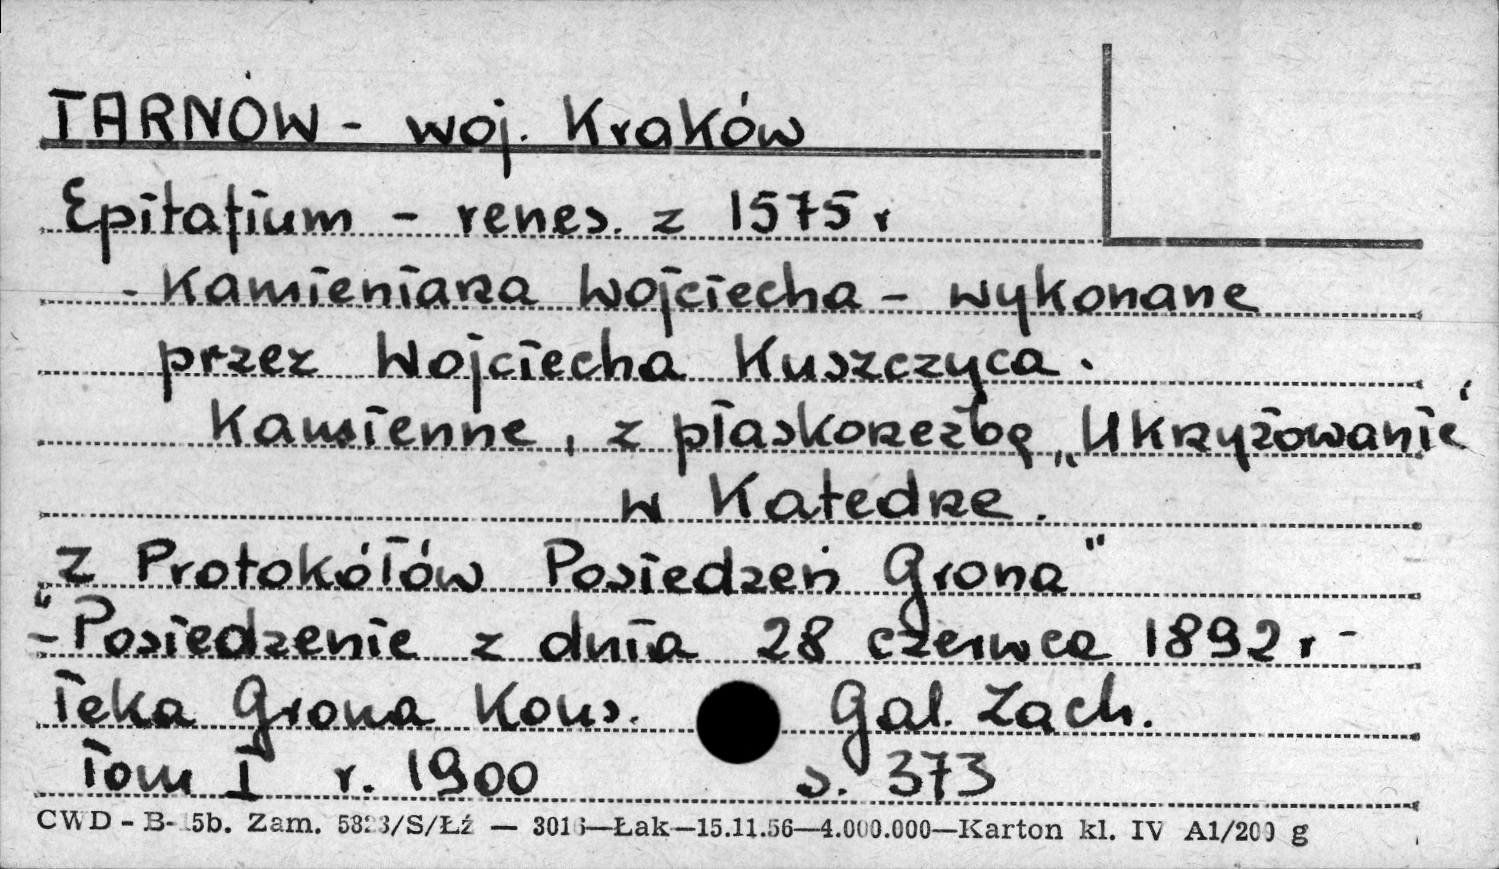 TARNÓW - woj. Kraków
Epitafium - renes. z 1575 r
- Kamieniarza Wojciecha - wykonane
przez Wojciecha Kuszczyca.
Kamienne, z płaskorzeźbą „Ukrzyżowanie“
w Katedrze.
z Protokółów Posiedzeń Grona"
"- Posiedzenie z dnia 28 czerwca 1892 r -
Teka Grona Kons. Gal. Zach.
Tom I r. 1900 s. 373
CWD - B- 5b. Zam. 5823/S/Łź — 3016—Łak—15.11.56—4.000.000—Karton kl. IV A1/200 g